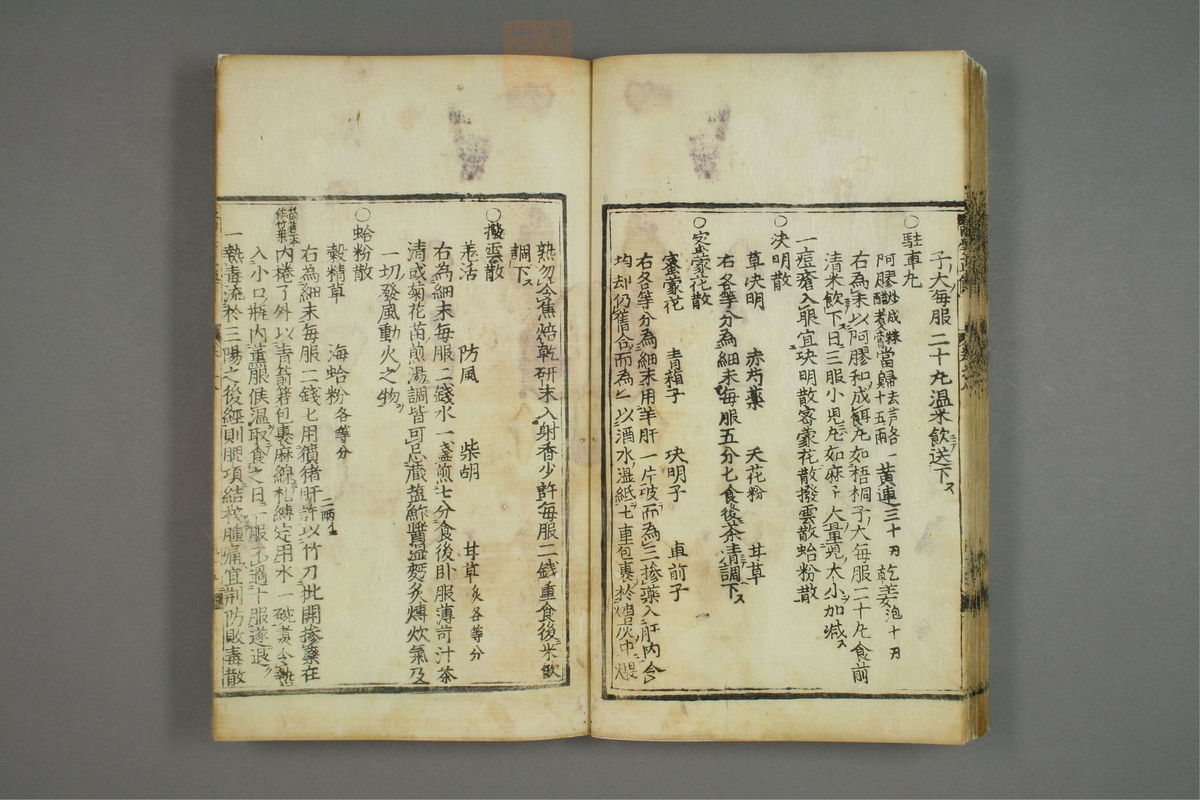 子大每服二十丸溫米飮送下ス
○駐車丸
阿膠 當歸 黃連三十刃 乾姜泡十刃
右為末以阿膠和成餌丸如梧桐子大每服二十丸食前
清米飮下日三服小兒丸如麻子大量兒大小加减ス
一痘瘡入眼宜玦明散密蒙花散撥雲散蛤粉散
○决明散
草决明 赤芍藥 天花粉 甘草
右各等分為細末每服五分七食後茶清調下ス
○密蒙花散
蜜蒙花 青葙子 玦明子 車前子
右各等分為細末用羊肝一片破而為三摻藥入肝內合
均却仍舊合而為一以酒水湿紙七重包裹於煻灰中煨
熟勿令焦焙乾研末入射香少許每服二錢重食後米飮
調下ス
○撥雲散
羗活 防風 柴胡 甘草炙各等分
右為細末每服二錢水一盞煎七分食後卧服薄苛汁茶
清或菊花苗煎湯調皆可忌藏盐鮓醬湿麪炙煿炊氣及
一切發風動火之物
○蛤粉散
穀精草 海蛤粉各等分
右為細末每服二錢七用獖猪肝許以竹刀批開摻藥在
內捲了外以青箬包裹麻線札縛定用水一碗煑令熟
入小口瓶內薰眼候温取食之日一服不過十服遂退
一熱毒流於三陽之後經則腮項結核腫痛宜荆防敗毒散